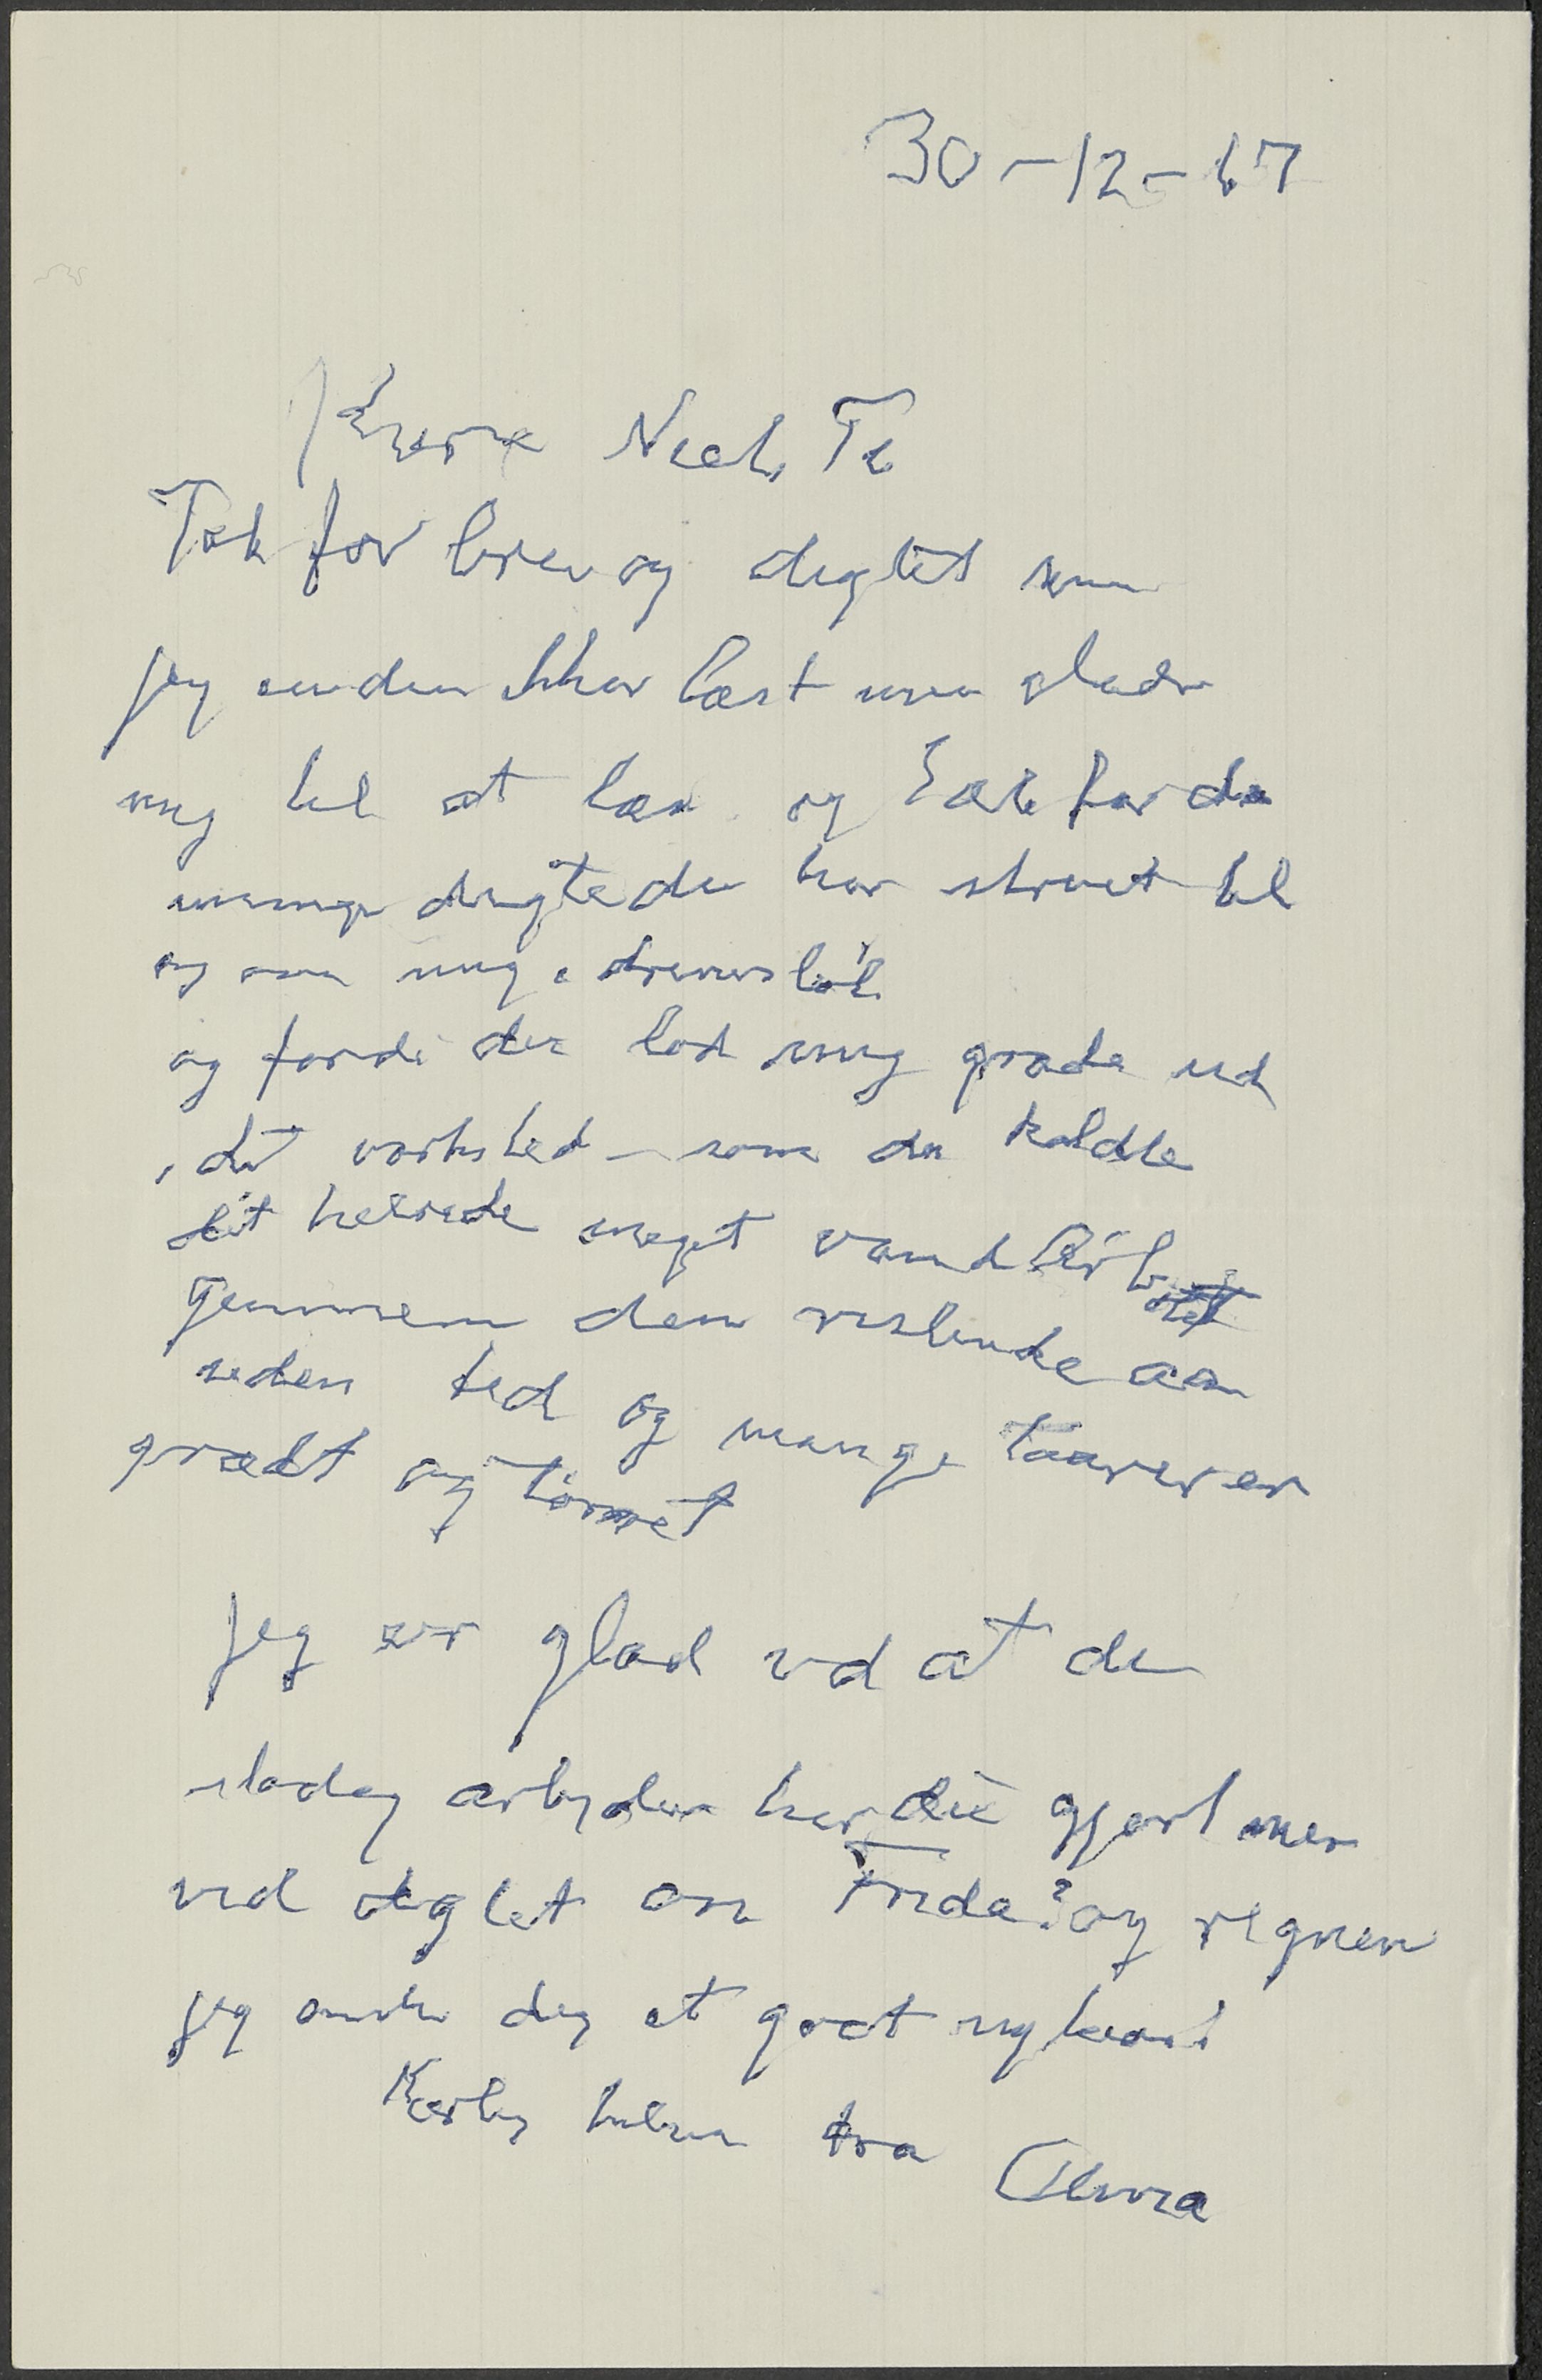 30-12-67
Kære Niels Te
Tak for brev og digtet som
jeg endnu ikke har læst men glæder
mig til at læse og Tak for de
mange digte du har skrevet til
og om mig
og fordi du lod mig græde ud
i dit værksted - som du kaldte
dit helvede meget vand er løbet
gennem den rislende aa
siden ted og mange taarer er
grædt og tørret
jeg er glad ved at du
stadig arbejder har du gjort mer
ved digtet om Frida? og regnen
jeg ønske dig et godt nytaar!
Kærlig hilsen fra Olivia